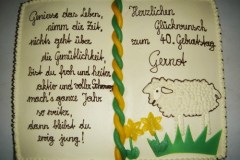 Geniesse das Leben,
nimm dir Zeit,
nichts geht über
die Gemütlichkeit,
bist du froh und heiter,
aktiv und voller Schwung
mach's ganze Jahr
so weiter,
dann bleibst du
ewig jung!
Herzlichen
Glückwunsch
zum 40. Geburtstag
Gernot